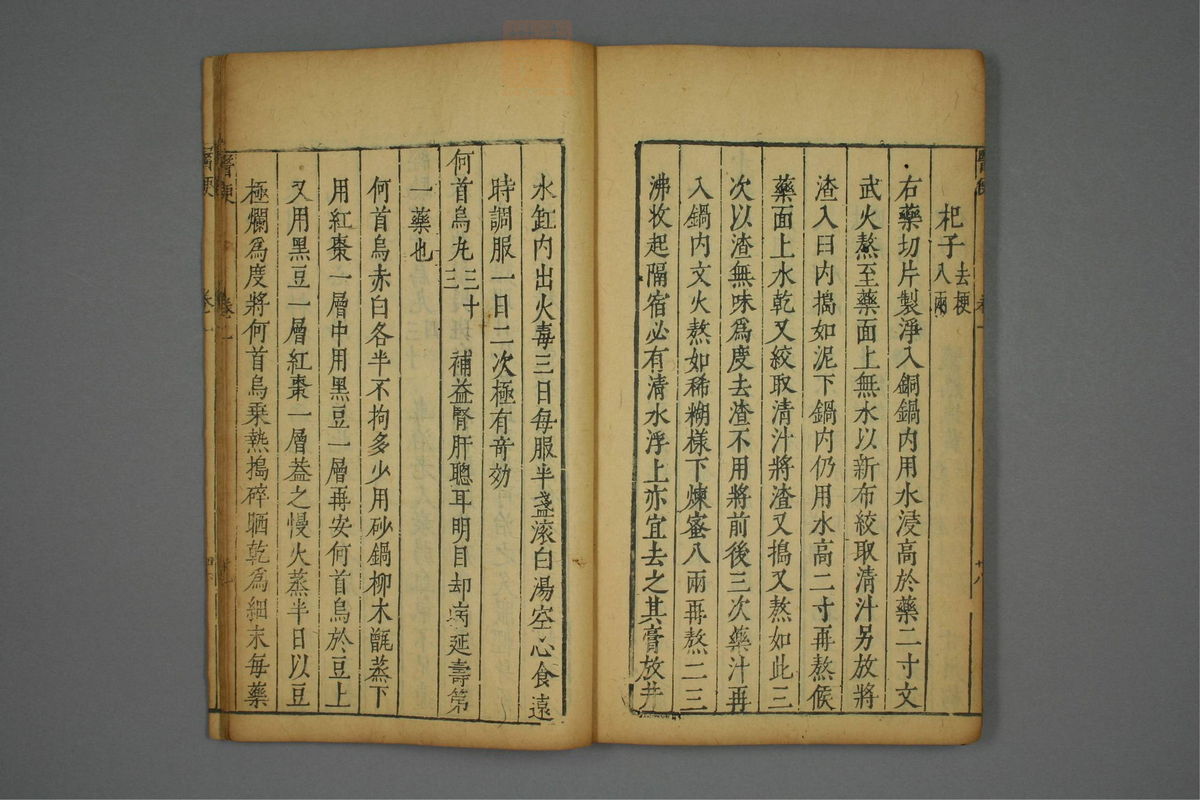 杞子去梗八兩
右藥切片製淨入銅鍋内用水浸高於藥二寸文
武火熬至藥面上無水以新布絞取清汁另放將
渣入臼内搗如泥下鍋内仍用水高二寸再熬候
藥面上水乾又絞取清汁將渣又搗又熬如此三
次以渣無味爲度去渣不用將前後三次藥汁再
入鍋内文火熬如稀糊樣下煉蜜八兩再熬二三
沸收起隔宿必有清水浮上亦宜去之其膏放井
水缸内出火毒三日每服半盞滚白湯空心食遠
時調服一日二次極有竒効
何首烏丸三十三 補益腎肝聰耳明目却病延壽第
一藥也
何首烏赤白各半不拘多少用砂鍋柳木甑蒸下
用紅棗一層中用黑豆一層再安何首烏於豆上
又用黑豆一層紅棗一層葢之慢火蒸半日以豆
極爛爲度將何首烏乗熱搗碎晒乾爲細末每藥
醫便 卷一